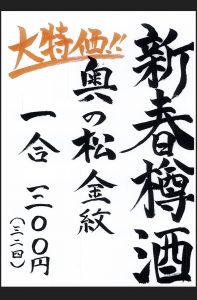 新春樽酒
大特価!!
奥の松金紋
一合 三〇〇円
(三二四)